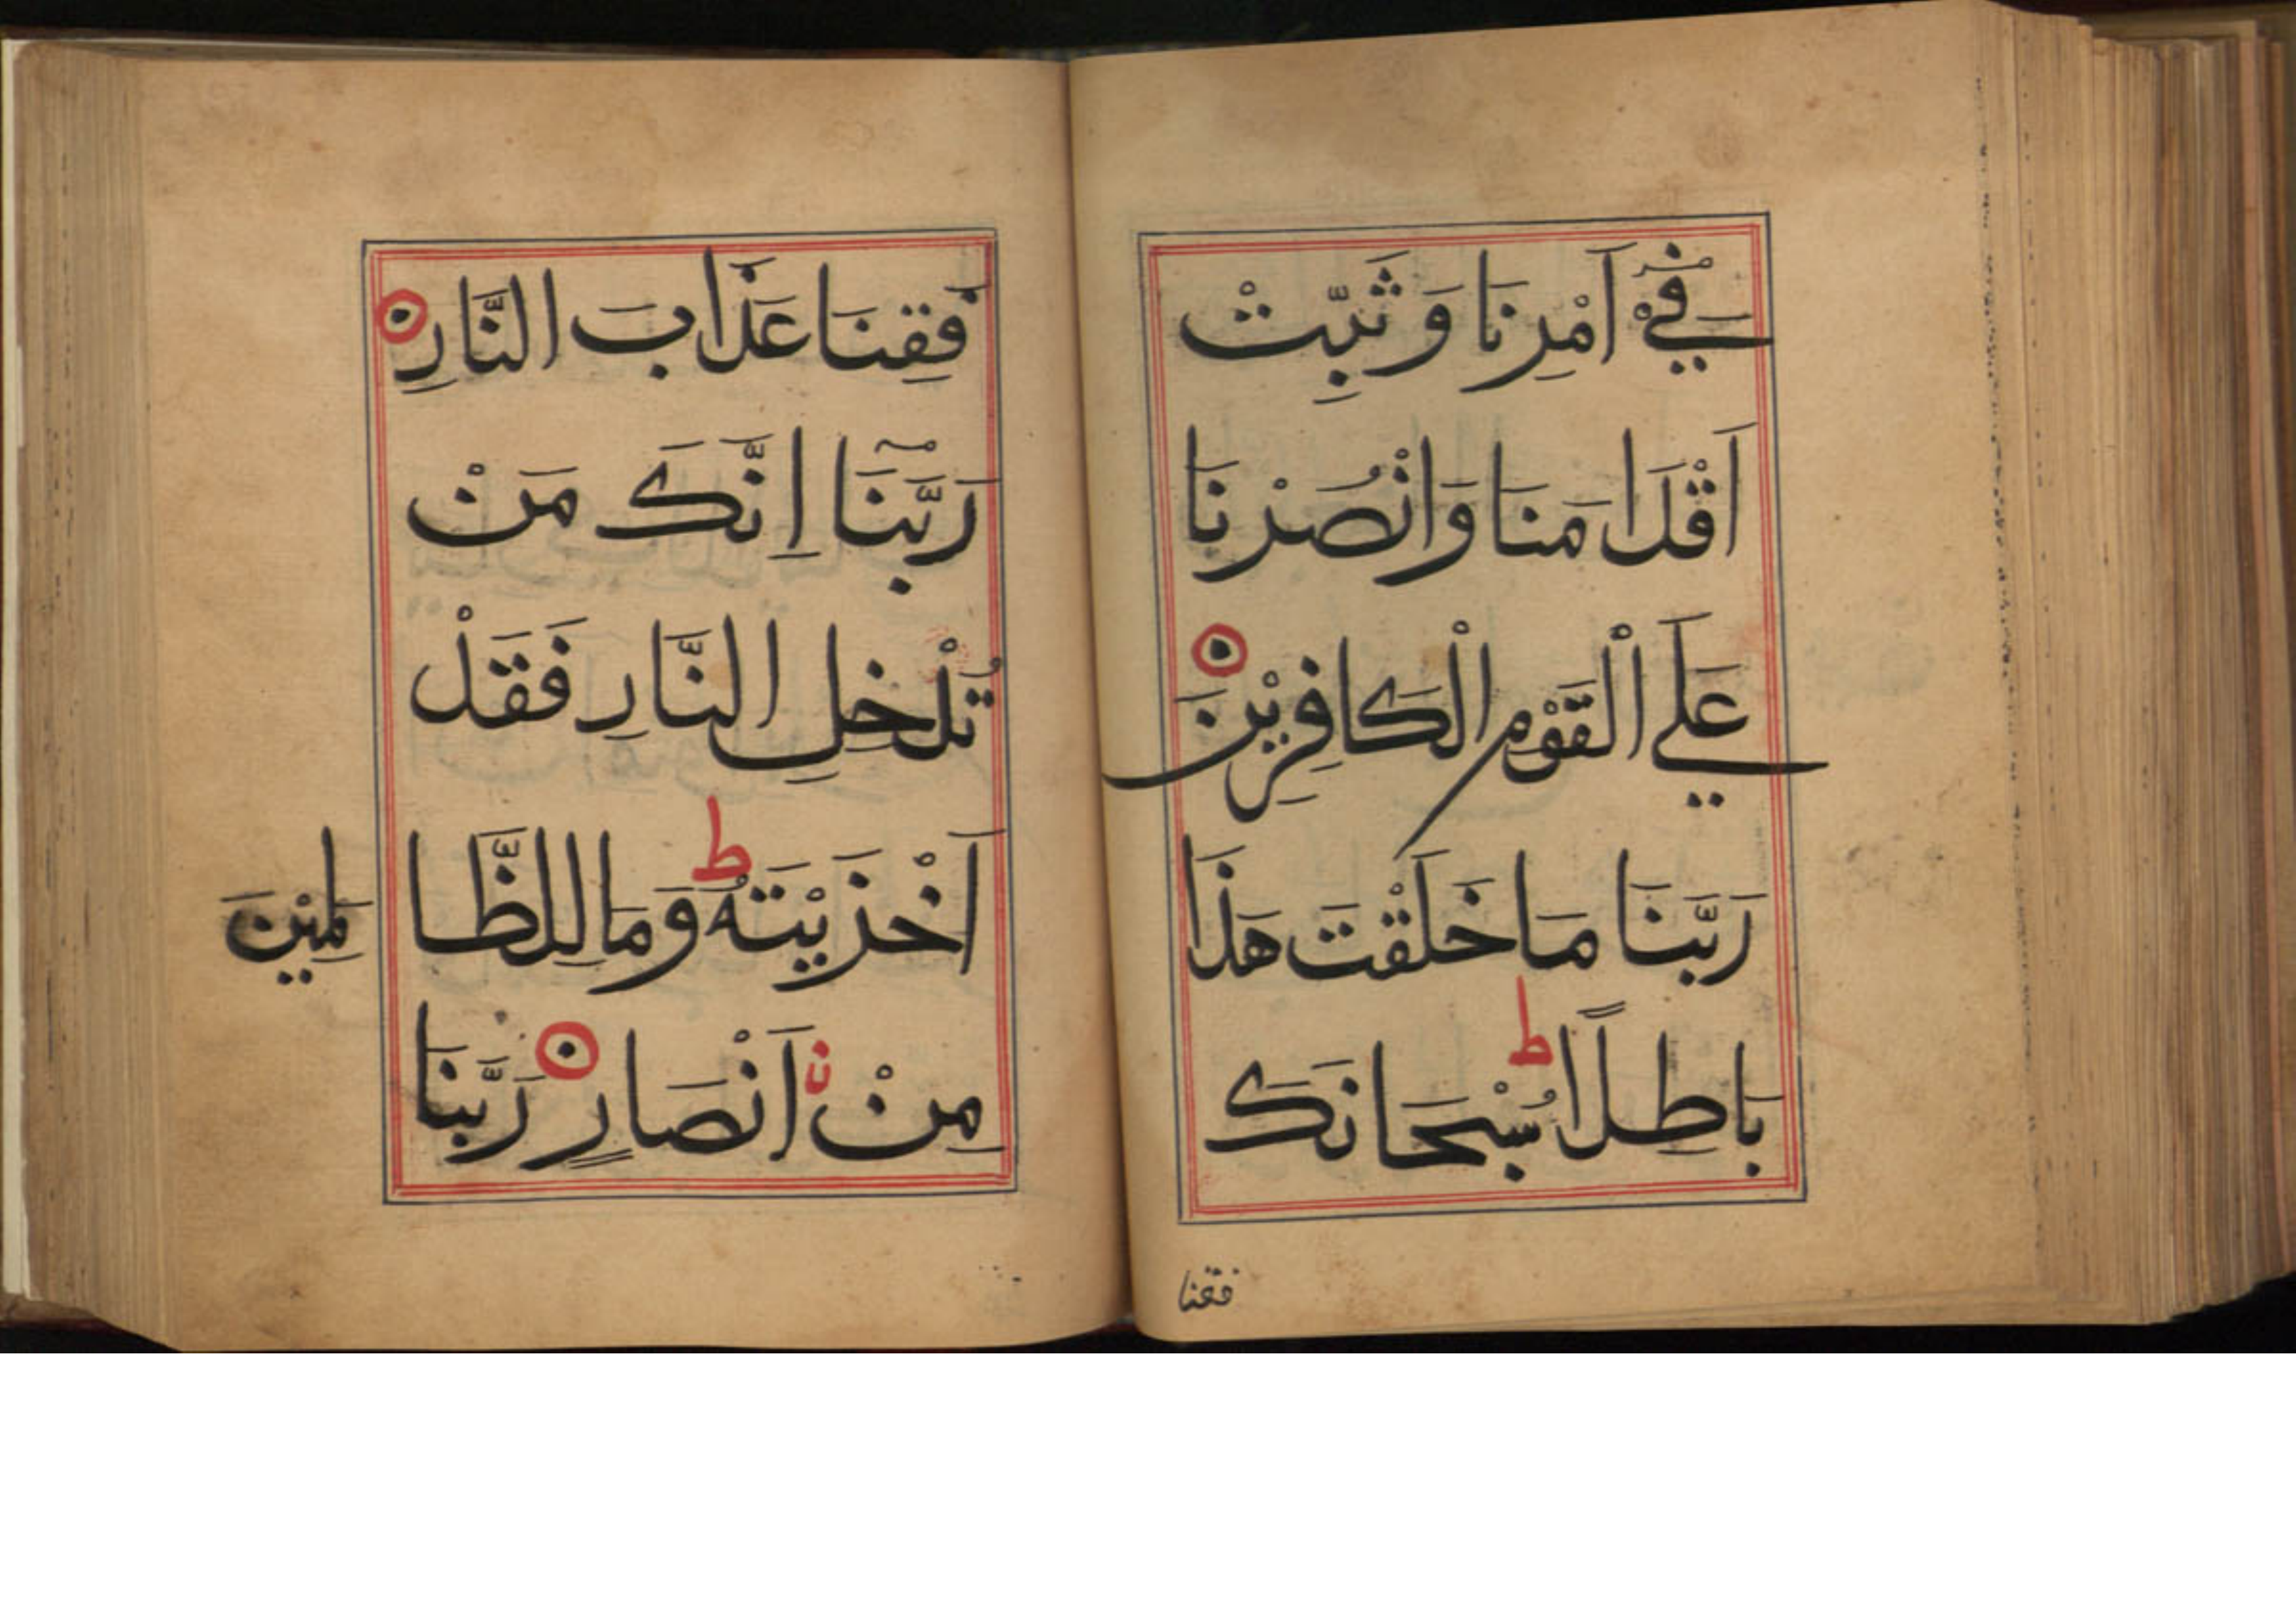 فِيْٓ اَمْرِنَا وَ ثَبِّتْ
اَقْدَامَنَا وَانْصُرْنَا
عَلَي الْقَوْمِ الْكَافِرِيْنَ
رَبَّنَا مَا خَلَقْتَ هَذَا
بَاطِلًا ط سُبْحَانَكَ
فقنا
فَقِنَا عَذَابَ النَّارِ
رَبَّنَآ اِنَّكَ مَنْ
تُدْخِلِ النَّارِ فَقَدْ
اَخْزَيْتَهُ ط وَمَا لِلظَّا لِمِيْنَ
مِنْ اَنْصَارٍ رَبَّنَا